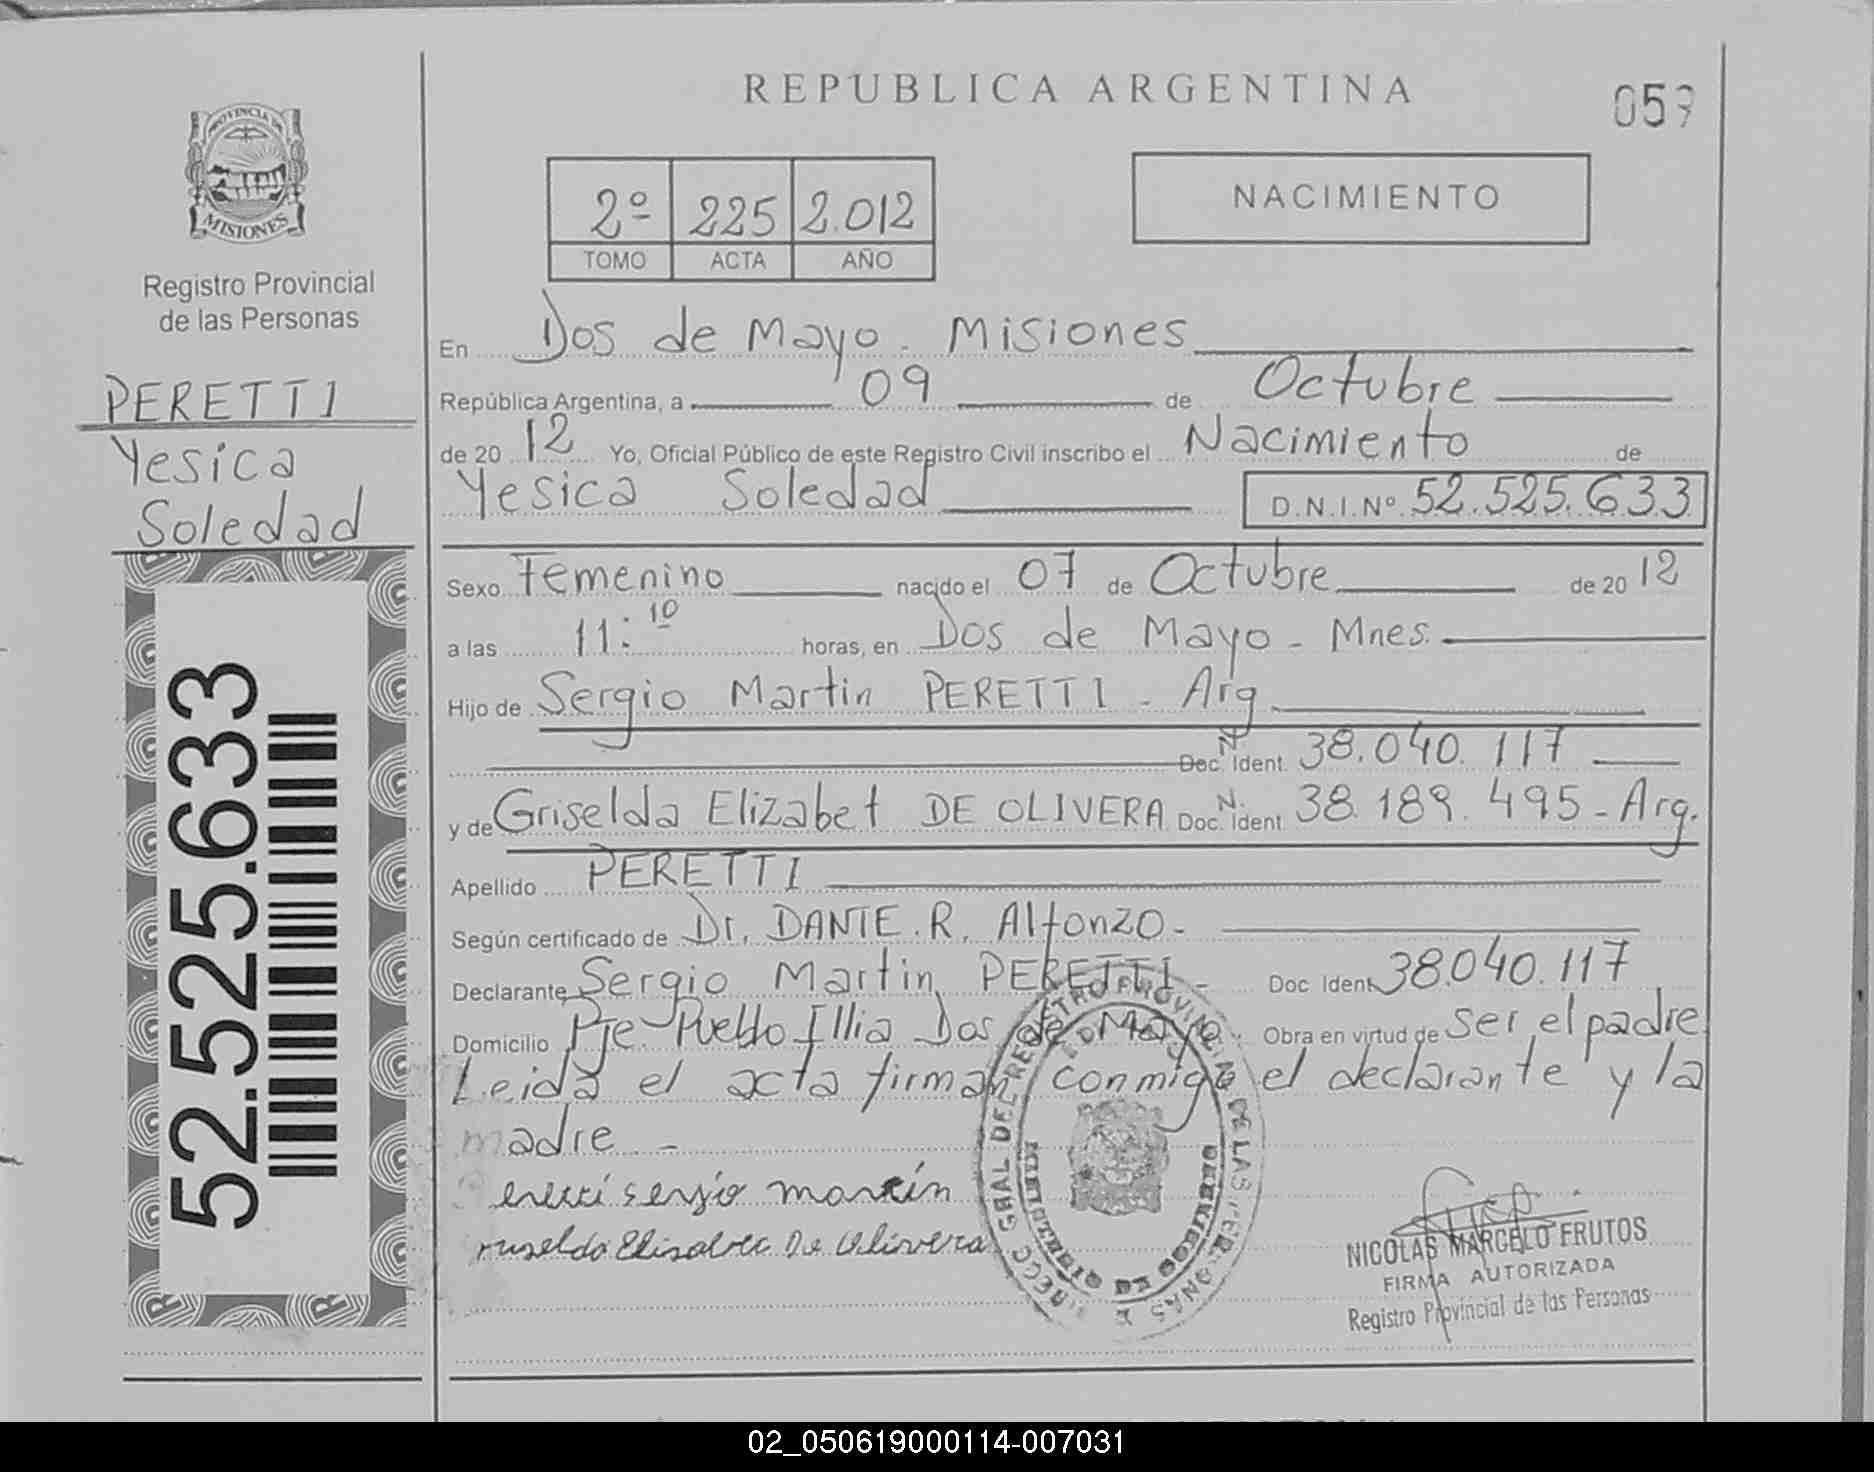 REPUBLICA ARGENTINA
059
PROVINCIA DE
MISIONES
Registro Provincial
de las Personas
PERETTI
Yesica
Soledad
52.525.633
2º 225 2.012
TOMO ACTA AÑO
NACIMIENTO
En Dos de Mayo - Misiones
República Argentina, a 09 de Octubre
de 20 12 Yo, Oficial Público de este Registro Civil inscribo el Nacimiento de
Yesica Soledad D.N.I.Nº 52.525.633
Sexo Femenino nacido el 07 de Octubre de 20 12
a las 11:10 horas, en Dos de Mayo - Mnes.
Hijo de Sergio Martin PERETTI - Arg.
Doc. Ident. N 38.040.117
y de Griselda Elizabet DE OLIVERA Doc. Ident N. 38.189.495 - Arg.
Apellido PERETTI
Según certificado de Dr. DANTE. R. Alfonzo -
Declarante Sergio Martin PERETTI - Doc Ident 38.040.117
Domicilio Pje. Pueblo Illia Dos de Mayo Obra en virtud de Ser el padre
Leida el acta firman conmigo el declarante y la
madre -
sergio martín
Elisabet De Olivera
NICOLAS MARCELO FRUTOS
FIRMA AUTORIZADA
Registro Provincial de las Personas
02_050619000114-007031